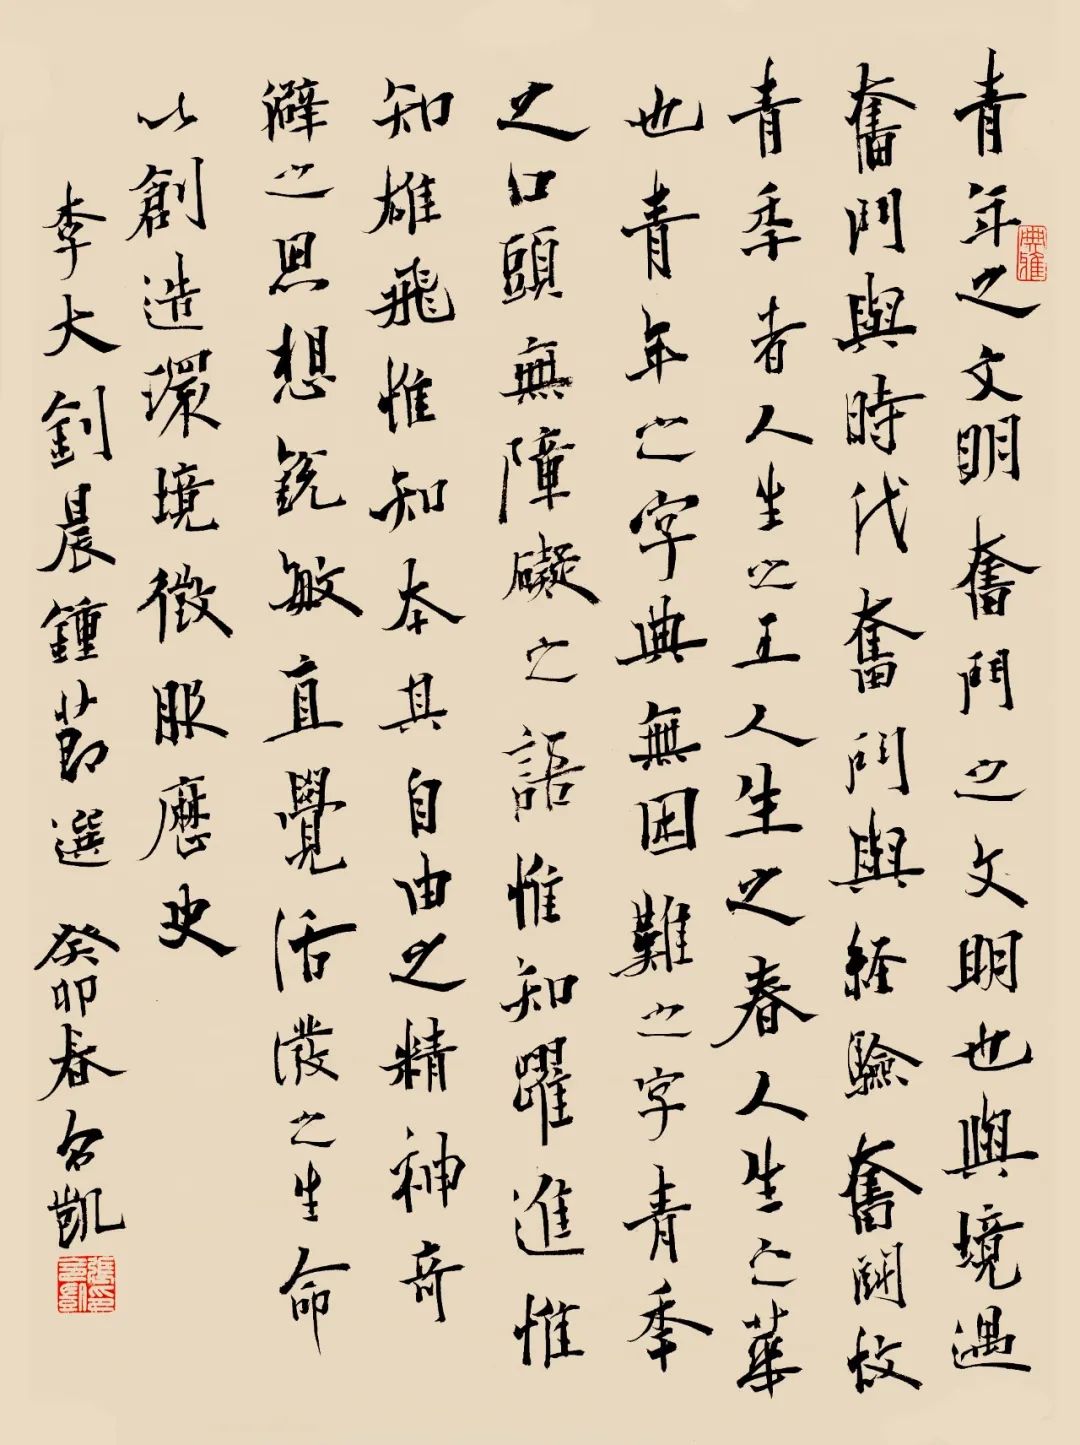 青年之文明奮鬥之文明也與境遇
奮鬥與時代奮鬥與経驗奮鬭故
青季者人生之王人生之春人生之華
也青年之字典無困難之字青季
之口頭無障礙之語惟知躍進惟
知雄飛惟知本其自由之精神奇
僻之思想銳敏直覺活潑之生命
以創造環境徵服歷史
李大釗晨鍾節選 癸卯春名凱
典雅